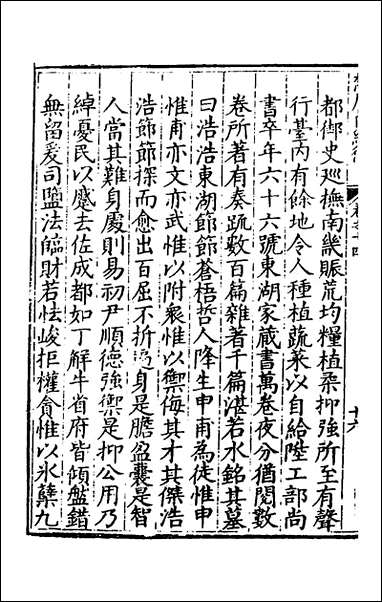 都御史巡撫南畿賑荒均糧植桑抑強所至有聲
行臺內有餘地令人種植蔬菜以自給陞工部尚
書卒年六十六號東湖家藏書萬卷夜分猶閱數
卷所著有奏疏數百篇雜著千篇湛若水銘其墓
曰浩浩東湖節節蒼梧哲人降生申甫為徒惟申
惟甫亦文亦武惟以附眾惟以禦侮其才其傑浩
浩節節探而愈出百屈不折身是膽盈囊是智
人當其難身處則易初尹順德強禦是抑公用乃
綽憂民以慼去佐成都如丁解牛省府皆傾盤錯
無留爰司鹽法臨財若怯峻拒權貪惟以氷櫱九
卷之十四
十六